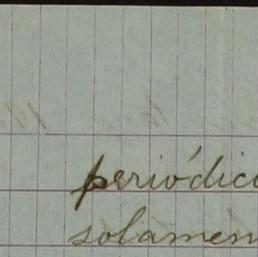 periódico
solamen